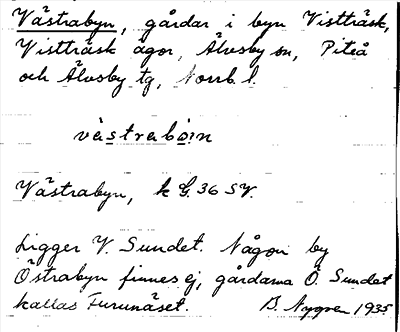 Västrabyn, gårdar i byn Vistträsk,
Vistträsk ägor, Älvsby sn, Piteå
och Älvsby tg, Norrb. l.
västrabo̤:n
Västrabyn, k G. 36 SV.
Ligger V. Sundet. Någon by
Östrabyn finnes ej, gårdarna Ö. Sundet
kallas Furunäset. B. Nygren 1935